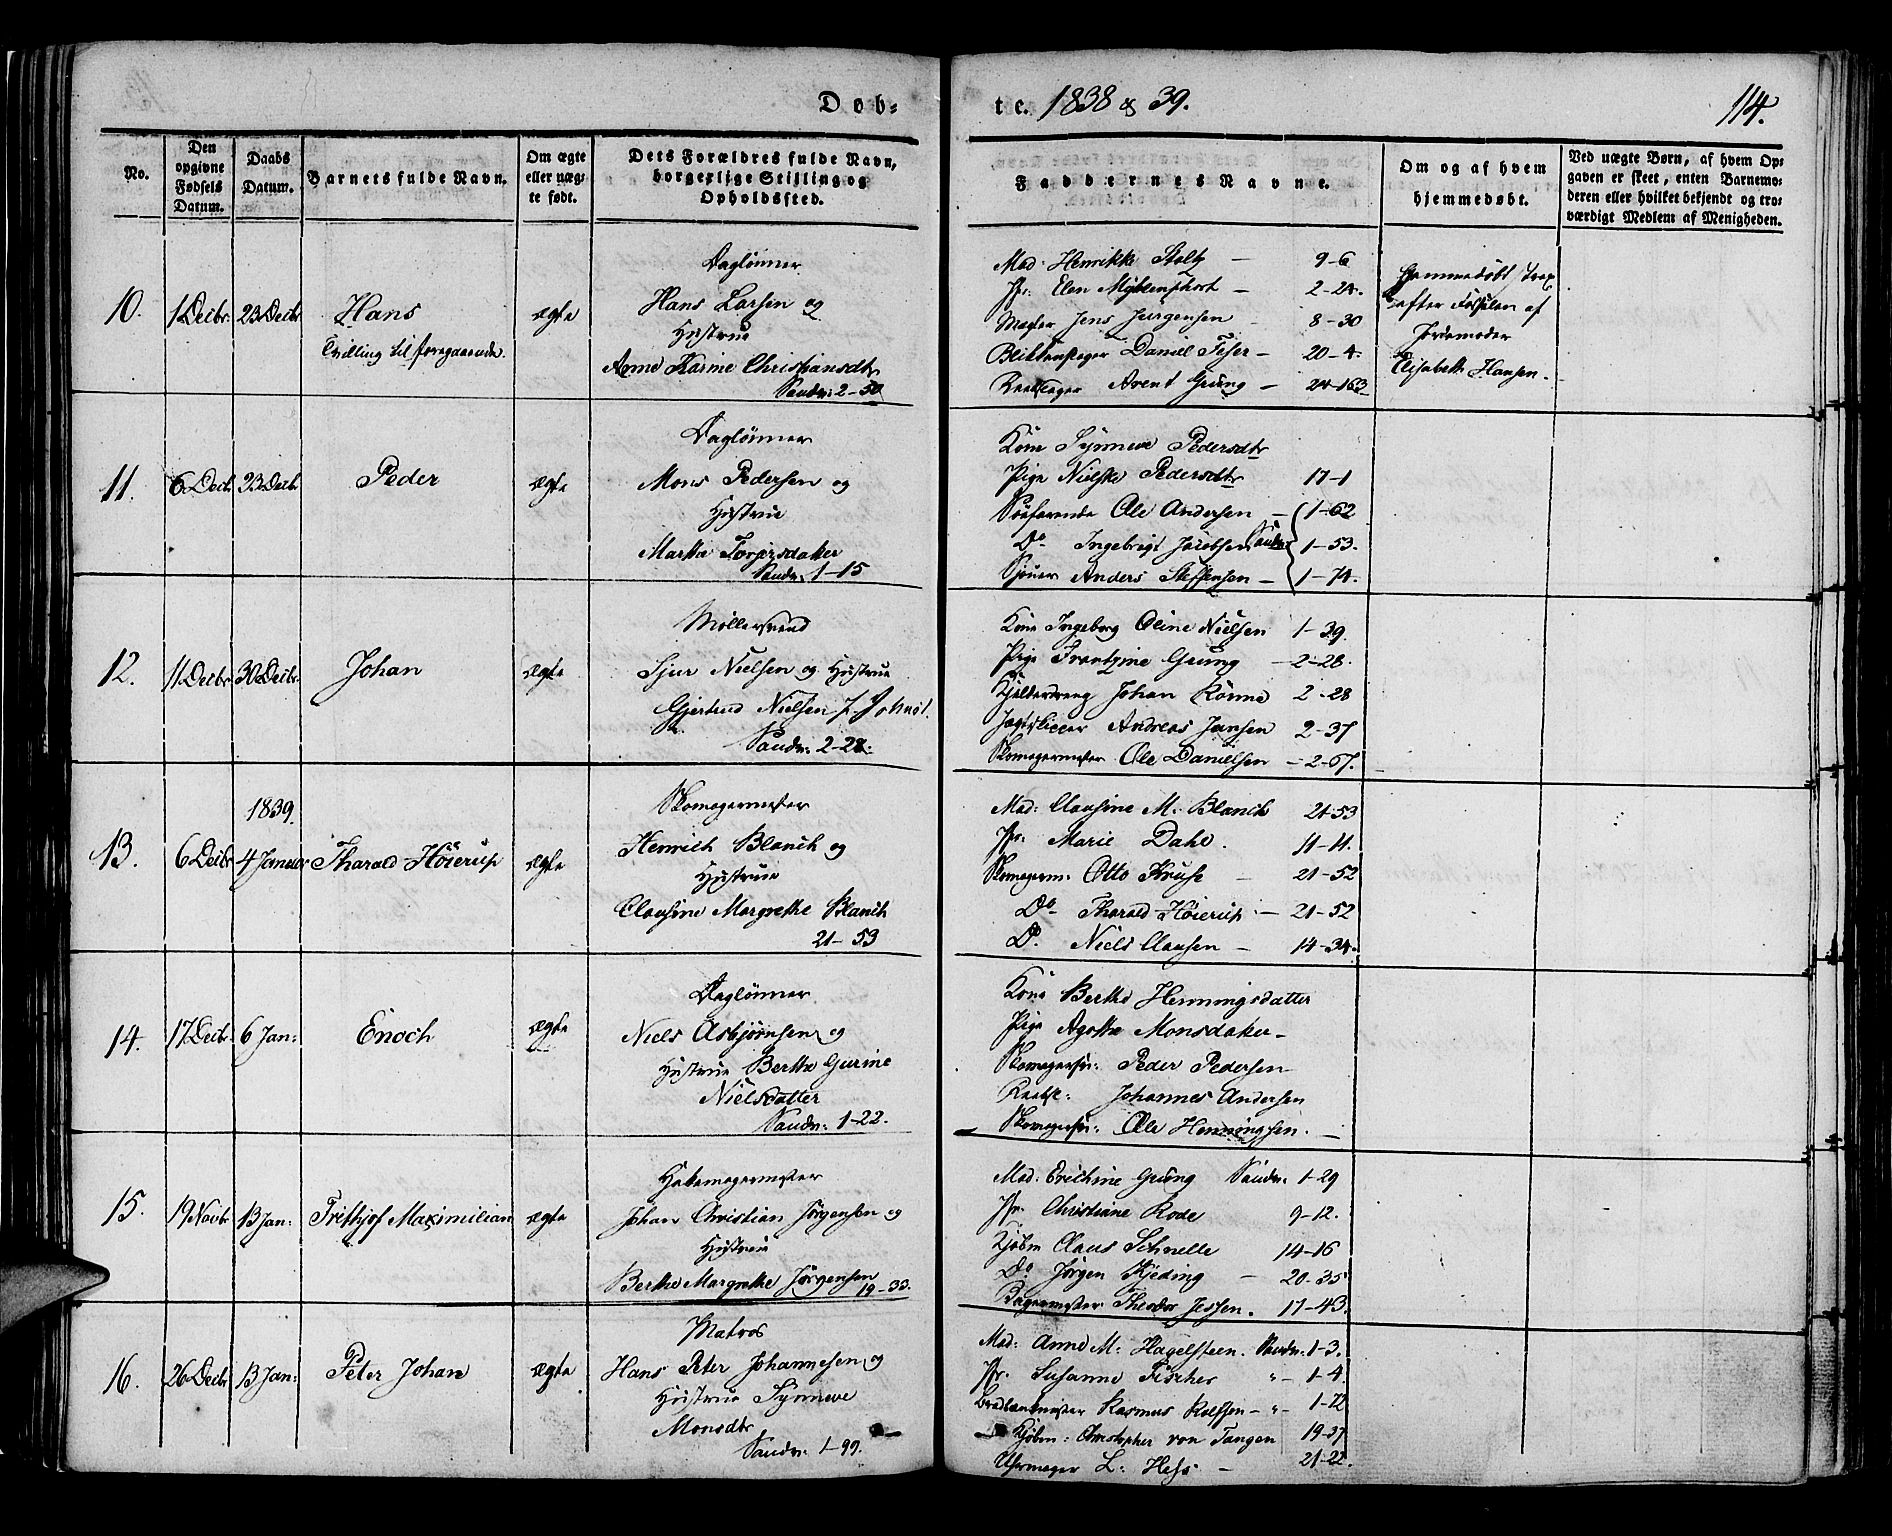 Døb-
te. 1838 & 39.
114.
No.
Den opgivne Fødsels Datum.
Daabs Datum.
Barnets fulde Navn.
Om ægte eller uæg- te født.
Dets Forældres fulde Navn, borgerlige Stilling og Opholdssted.
Faddernes Navne.
Om og af hvem hjemmedøbt.
Ved uægte Børn, af hvem Op- gaven er skeet, enten Barnemo- deren eller hvilket bekjendt og tro- værdigt Medlem af Menigheden.
10.
1 Decbr.
23 Decbr
Hans
Tvilling til foregaaende.
ægte
Daglønner
Hans Larsen og
Hustrue
Anne Karine Christiansdtr
Sandv: 2-50
Mad: Henrikke Stoltz — 9-6
Jfr: Elen — 2-24.
Mægler Jens Jurgensen 8-30
Blikkenslager Daniel Feser — 20-4.
Arent Grung — 24-163
Hjemmedøbt strax
efter Fødselen af
Jordemoder
Elisabeth Hansen.
11.
6 Decb.
23 Decb.
Peder
ægte
Daglønner
Mons Pedersen og
Hustrue
Martha
Sandv. 1-15
Kone Synneve Pedersdtr
Pige Nielske Pedersdtr 17-1
Søefarende Ole Andersen — 1-62
Do Ingebrigt Jacobsen Sandv 1-53.
Anders Steffensen — 1-74.
12.
11 Decbr
30 Decbr.
Johan
ægte
Møllersvend
Sjur Nielsen og Hustrue
Gjertrud Nielsen f.
Sandv: 2-28.
Kone Ingeborg Oline Nielsen 1-39.
Pige Frantzine Grung — 2-28.
Kjelderdreng Johan Rønne 2-28
Andreas Jansen 2-37
Skomagermester Ole Danielsen — 2-67.
13.
6 Decbr
1839.
4 Januar
Tharald Höierup
ægte
Skomagermester
Henrich Blanch og
Hustrue
Clausine Margrethe Blanch
21-53
Mad: Clausine M. Blanch 21-53
Jfr. Marie Dahl. 11-11.
Skomagerm: Otto Kruse — 21-52
Do Tharald Höierup — 21-52
D. Niels Clausen — 14-34.
14.
17 Decbr.
6 Jan:
Enoch
ægte
Daglønner
Niels Asbjørnsen og
Hustrue Berthe Gurine
Nielsdatter
Sandv: 1-22.
Kone Berthe Henningsdatter
Pige Agathe Monsdatter —
Skomagersv: Peder Pedersen
Johannes Andersen
Skomagersv: Ole Henningsen.
15.
19 Novbr
13 Jan:
Frithjof Maximilian
ægte
Johan Christian Jörgensen og
Hustrue
Berthe Margrethe Jörgensen
19-33.
Mad: Erichine Grung Sandv: 1-29
Jfr. Christiane Rode 9-12.
Kjøbm Claus Schnelle 14-16
Do Jørgen Kjeding — 20-35
Bagermester Theodor Jessen. 17-43.
16.
26 Decbr
13 Jan:
Peter Johan
ægte
Matros
Hans Peter Johannesen og
Hustrue Synneve
Monsdtr
Sandv. 1-99.
Mad: Anne M. Hagelsteen. Sandv: 1-3.
Jfr. Susanne Fischer " - 1-4.
Rasmus Rolfsen — " - 1-72
Kjøbm: Christopher von Tangen 19-37
Uhrmager L: Hess — 21-22.